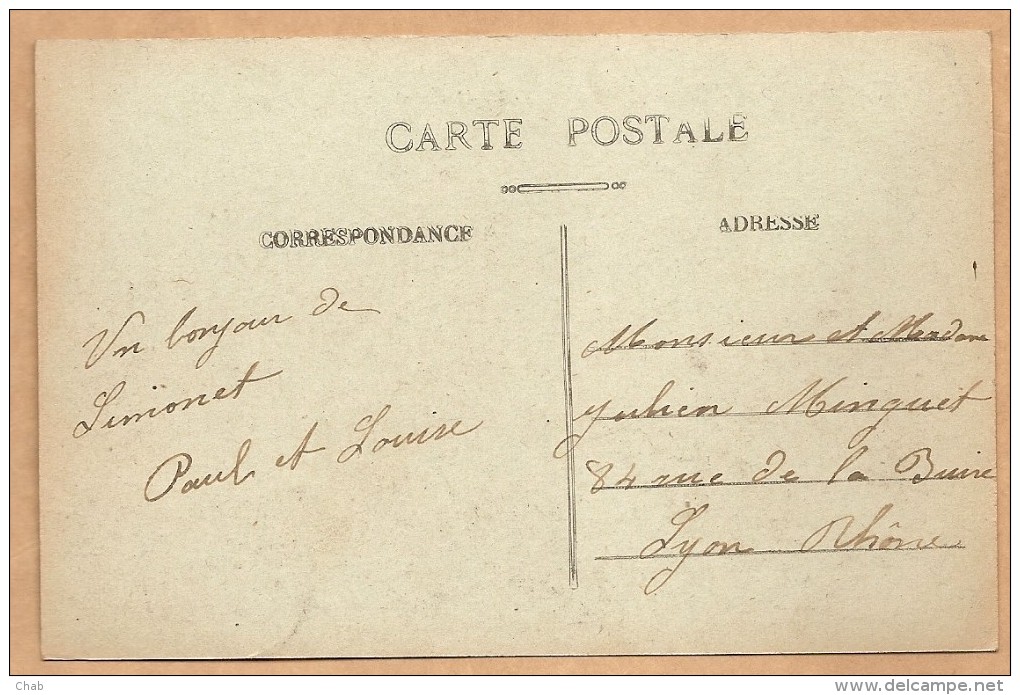 CARTE POSTALE
CORRESPONDANCE
Un bonjour de
Limonet
Paul et Louise
ADRESSE
Monsieur et Madame
Julien Minguet
84 rue de la Buire
Lyon Rhône
Chab
www.delcampe.net